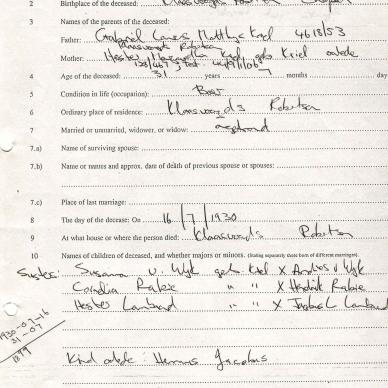 2 Birthplace of the deceased: Klaasvoogds Robertson
3 Names of the parents of the deceased:
Father: Gabriel Louis Matthys Kriel 4618/53
Klaasvoogds Robertson
Mother: Hester Kriel geb Kriel oolede
4 Age of the deceased: 31 years months day
5 Condition in life (occupation): Boer
6 Ordinary place of residence: Klaasvoogds Robertson
7 Married or unmarried, widower, or widow: ongetroud
7.a) Name of surviving spouse:
7.b) Name or names and approx. date of death of previous spouse or spouses:
7.c) Place of last marriage:
8 The day of the decease: On 16/7/1930
9 At what house or where the person died: Klaasvoogds Robertson
10 Names of children of deceased, and whether majors or minors. (Stating separately those born of different marriages).
Susters: Susanna v. Wyk geb. Kriel X Andries v Wyk
Cornelia Rabie " " X Hendrik Rabie
Hester Lombard " " X Lombard
1930-07-16
31-07
1899
Kind oolede: Hermanus Jacobus